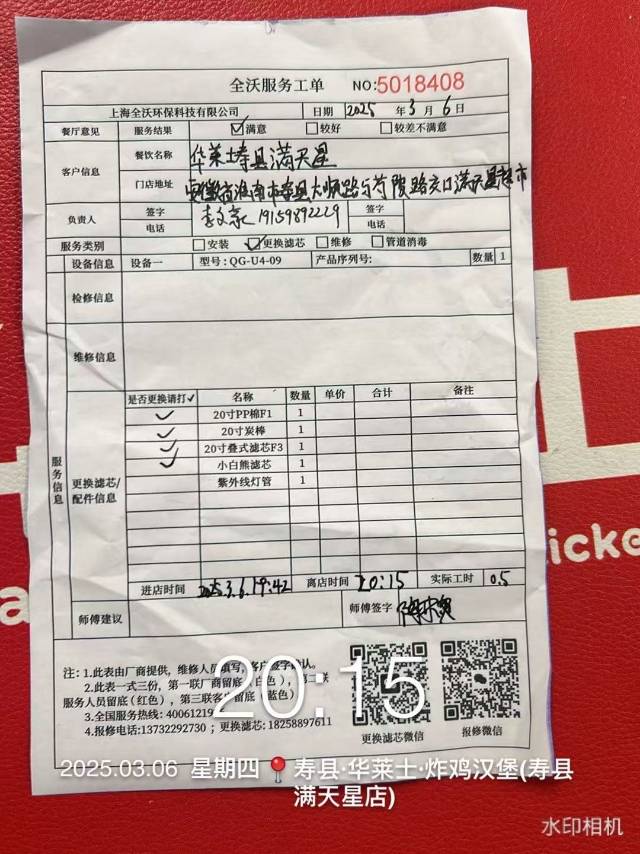 全沃服务工单 NO:5018408
上海全沃环保科技有限公司 日期 2025 年 3 月 6 日
餐厅意见 服务结果 ☑满意 □较好 □较差不满意
客户信息 餐饮名称 华莱士寿县满天星
门店地址 安徽省淮南市寿县大顺路与芍陂路交口满天星超市
负责人 签字 电话 19159892229 签字 电话
服务类别 □安装 ☑更换滤芯 □维修 □管道消毒
设备信息 设备一 型号:QG-U4-09 产品序列号: 数量 1
检修信息
维修信息
服务信息
更换滤芯/配件信息
是否更换请打✓ 名称 数量 单价 合计 备注
✓ 20寸PP棉F1 1
✓ 20寸炭棒 1
✓ 20寸叠式滤芯F3 1
✓ 小白熊滤芯 1
紫外线灯管 1
进店时间 2025.3.6.19:42 离店时间 20:15 实际工时 0.5
师傅建议 师傅签字
注: 1.此表由厂商提供, 维修人员填写, 客户签字确认。
2.此表一式三份, 第一联厂商留底(白色), 第二联
服务人员留底(红色), 第三联客户留底(蓝色)
3.全国服务热线: 40061219
4.报修电话:13732292730 ; 更换滤芯: 18258897611
更换滤芯微信 报修微信
20:15
2025.03.06 星期四 寿县·华莱士·炸鸡汉堡(寿县
满天星店)
水印相机
icke
a